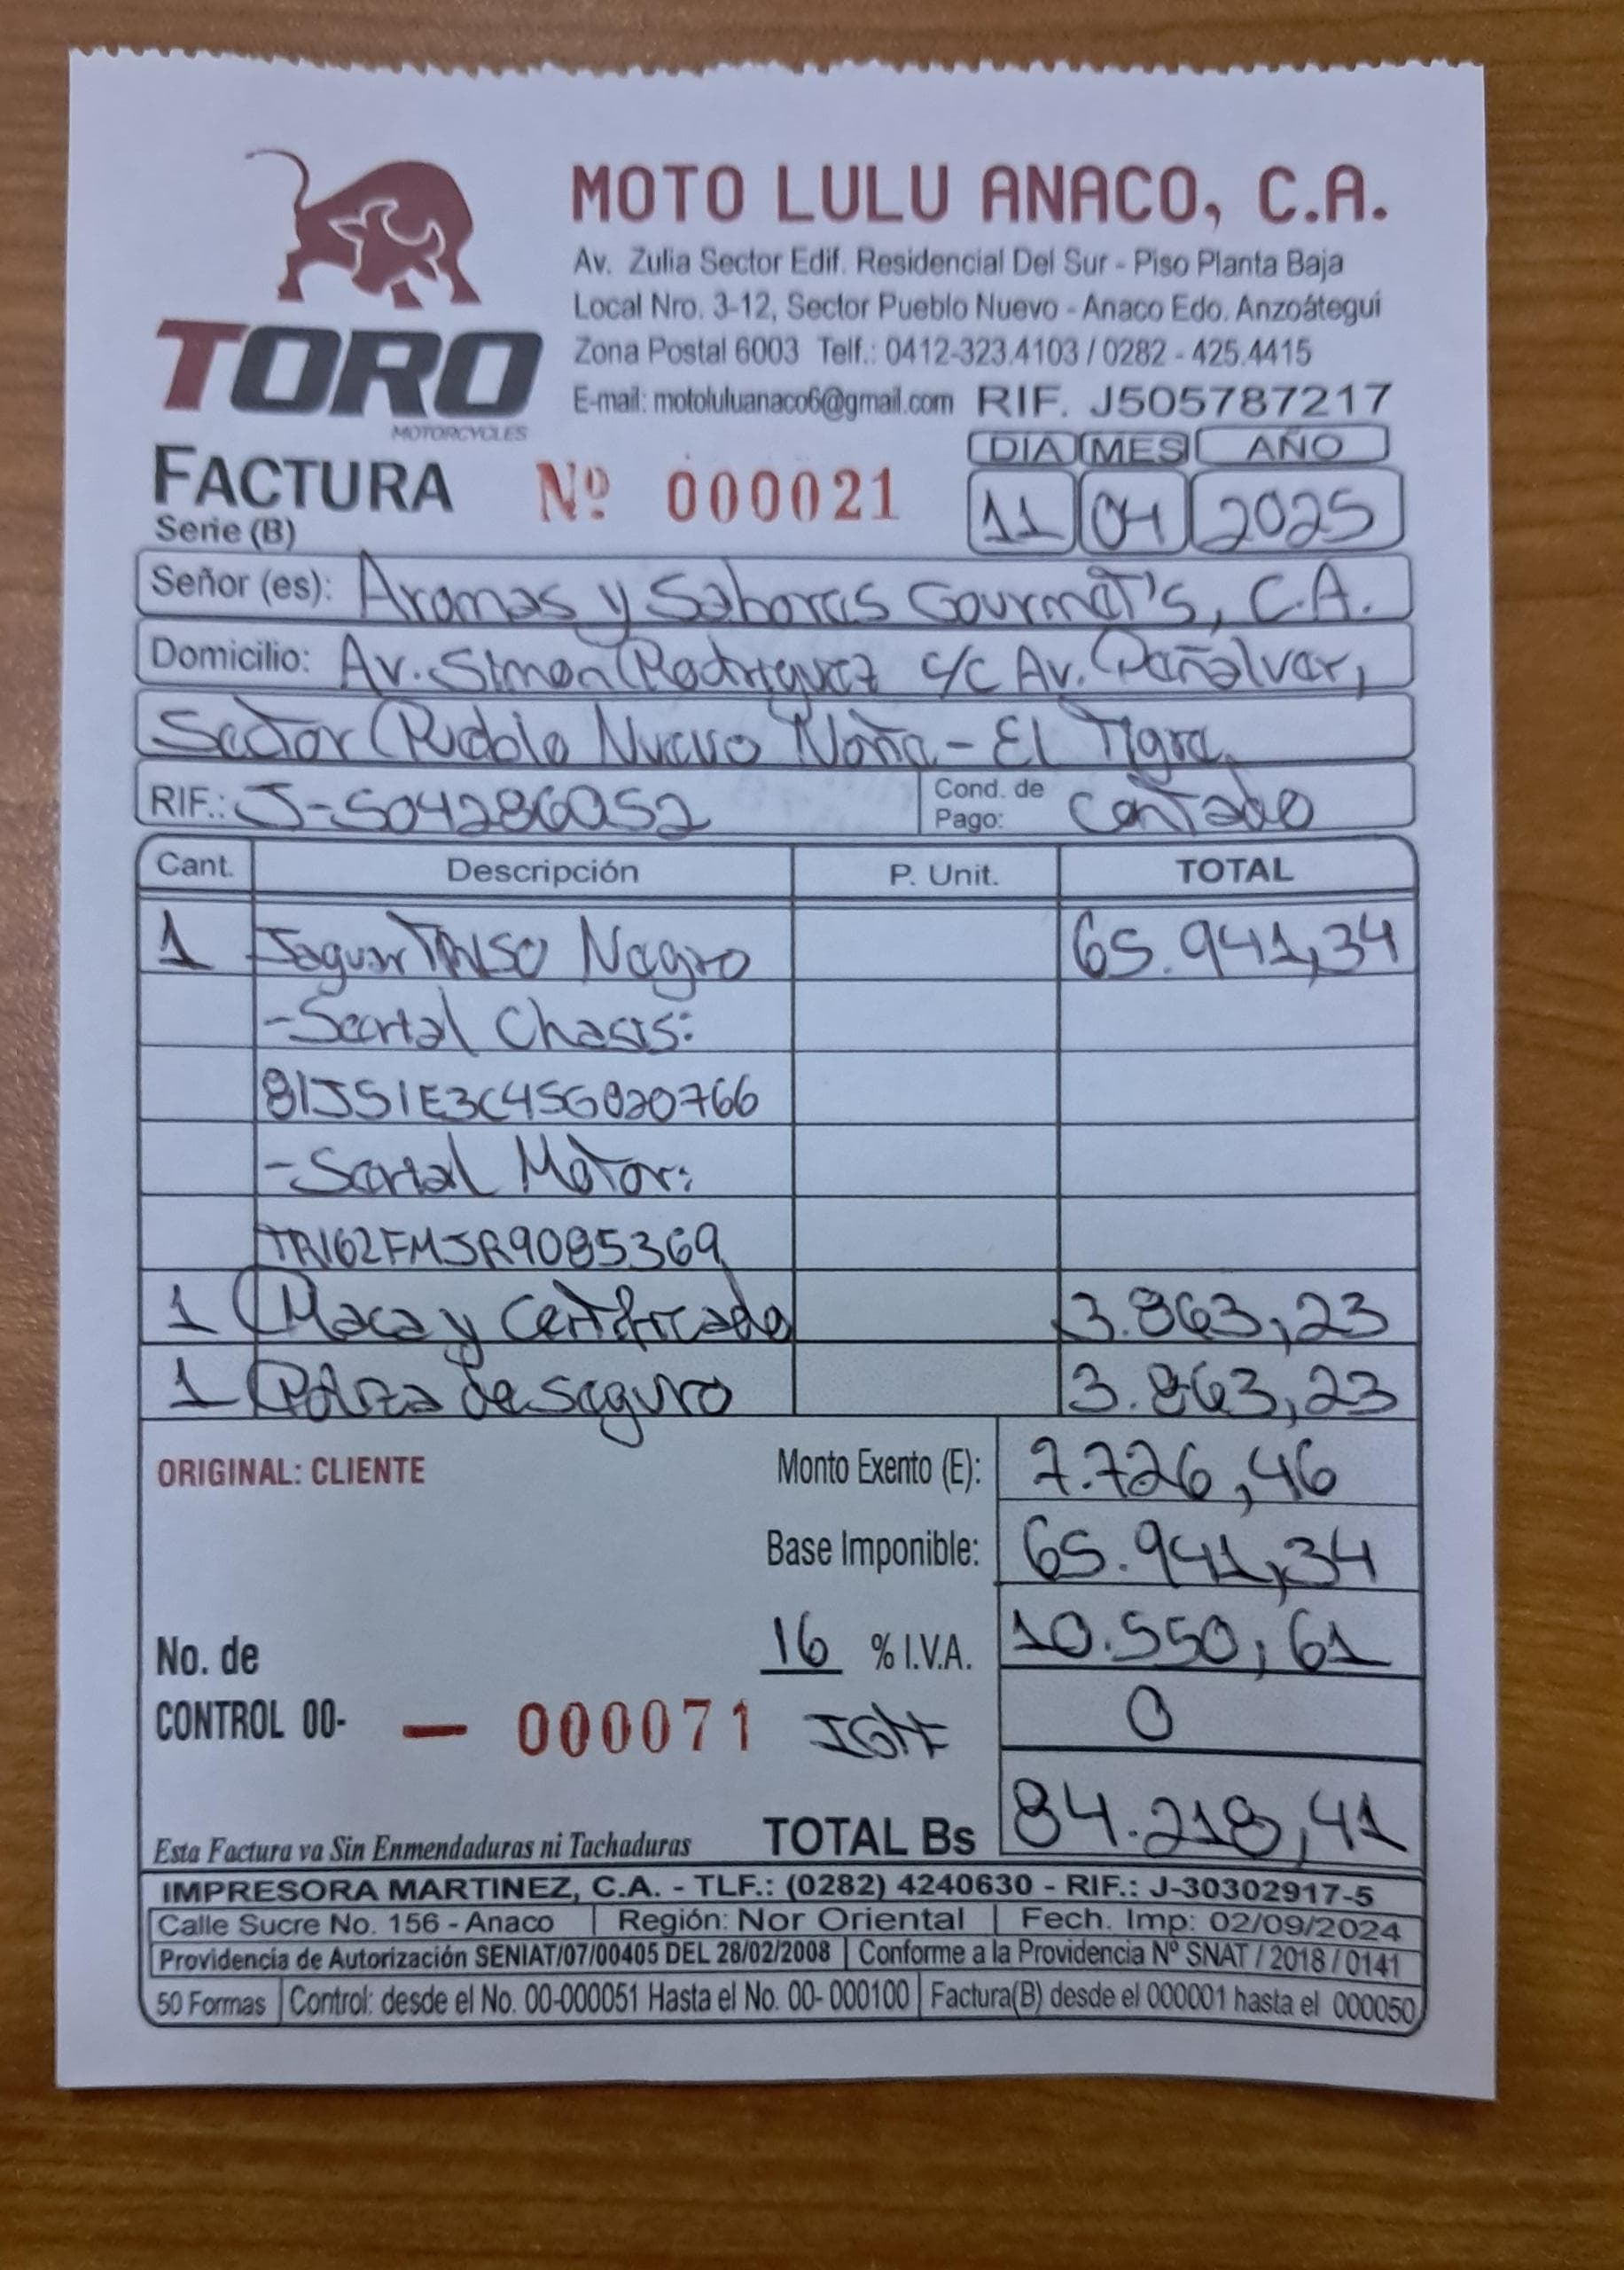 MOTO LULU ANACO, C.A.
Av. Zulia Sector Edif. Residencial Del Sur - Piso Planta Baja
Local Nro. 3-12, Sector Pueblo Nuevo - Anaco Edo. Anzoátegui
Zona Postal 6003 Telf.: 0412-323.4103 / 0282 - 425.4415
E-mail: motoluluanaco6@gmail.com RIF. J505787217
TORO
MOTORCYCLES
DIA MES AÑO
FACTURA Nº 000021 11 04 2025
Serie (B)
Señor (es): Aromas y Sabores Gourmet's, C.A.
Domicilio: Av. Simon Rodriguez c/c Av. Peñalver,
Sector Pueblo Nuevo Norte - El Tigre
RIF.: J-504286052 Cond. de Pago: Contado
Cant. Descripción P. Unit. TOTAL
1 Jaguar Negro 65.941,34
- Serial Chasis:
81JS1E3C4SG020766
- Serial Motor:
TR162FMJR9085369
1 Placa y Certificado 3.863,23
1 Poliza de seguro 3.863,23
ORIGINAL: CLIENTE Monto Exento (E): 7.726,46
Base Imponible: 65.941,34
16 % I.V.A. 10.550,61
No. de
CONTROL 00- — 000071 IGTF 0
Esta Factura va Sin Enmendaduras ni Tachaduras TOTAL Bs 84.218,41
IMPRESORA MARTINEZ, C.A. - TLF.: (0282) 4240630 - RIF.: J-30302917-5
Calle Sucre No. 156 - Anaco Región: Nor Oriental Fech. Imp: 02/09/2024
Providencia de Autorización SENIAT/07/00405 DEL 28/02/2008 Conforme a la Providencia Nº SNAT / 2018 / 0141
50 Formas Control: desde el No. 00-000051 Hasta el No. 00- 000100 Factura(B) desde el 000001 hasta el 000050